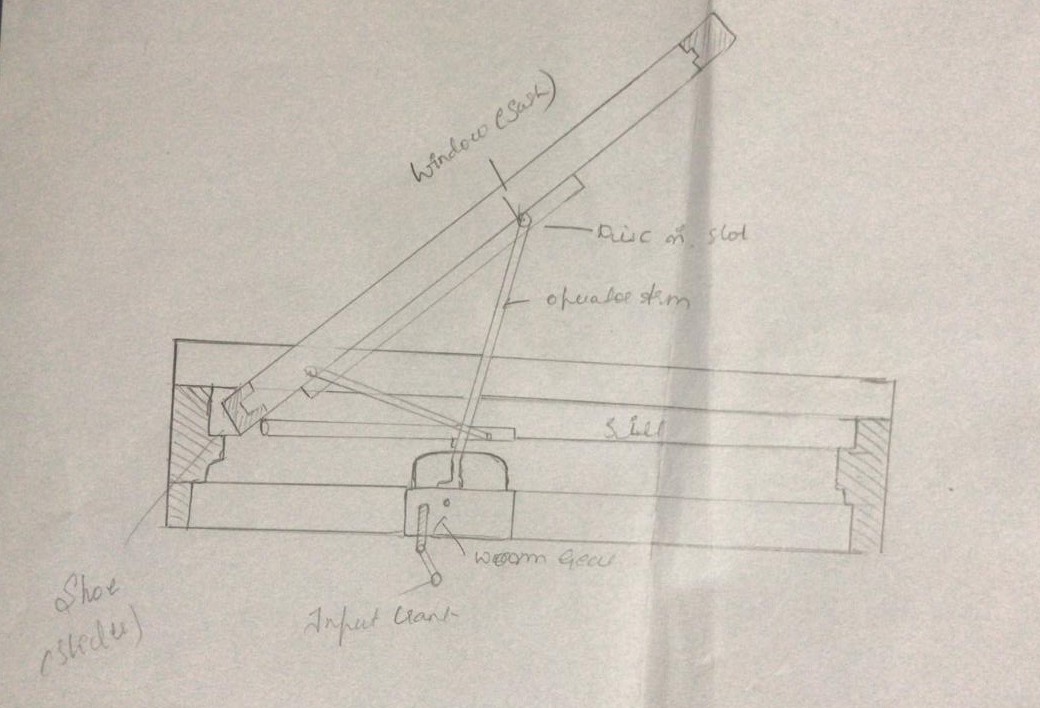 Window (Sash)
Disc in slot
operator arm
Sill
Worm Gear
Input Crank
Shoe
(slider)